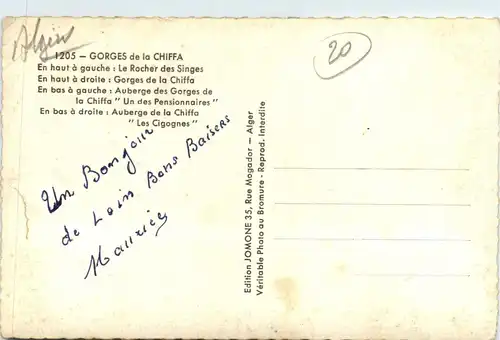 Algérie
20
1205 — GORGES de la CHIFFA
En haut à gauche : Le Rocher des Singes
En haut à droite : Gorges de la Chiffa
En bas à gauche : Auberge des Gorges de
la Chiffa " Un des Pensionnaires "
En bas à droite : Auberge de la Chiffa
" Les Cigognes "
Un Bonjour
de Loin Bons Baisers
Maurice
Edition JOMONE 35, Rue Mogador — Alger
Véritable Photo au Bromure - Reprod. Interdite